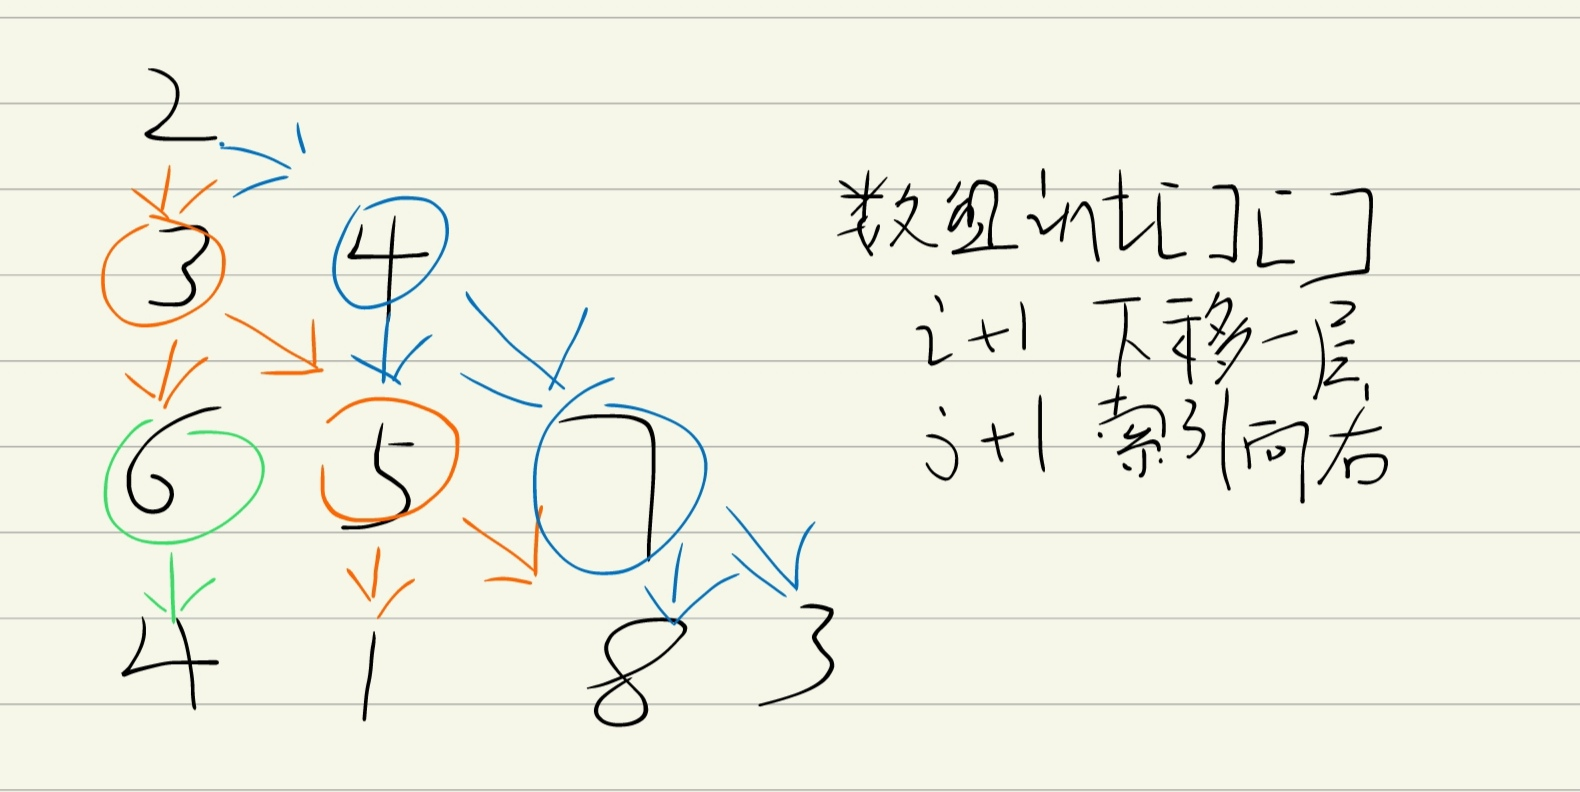 2
3 4
6 5 7
4 1 8 3
数组 int[][]
i+1 下移一层
j+1 索引向右